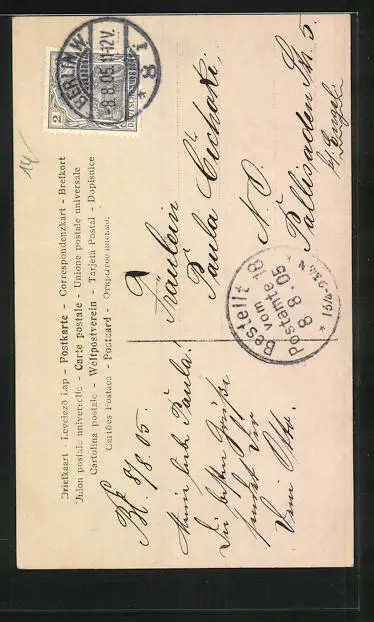 Briefkaart - Levelező Lap - Postkarte - Correspondenzkart - Brefkort
Union postale universelle - Carte postale - Unione postale universale
Cartolina postale - Weltpostverein - Tarjeta Postal - Dopisnice
Postcard - Открытое письмо.
BERLIN W
8.8.05. 11-12V.
* 8 i
2
DEUTSCHES REICH
14
Bln. 8/8.05.
Mein lieb. Paula!
Die besten Grüße
sendet Dir
Dein Otto.
Fräulein
Paula
N.O.
Pallisaden Str. 5.
b/ Engel
Bestellt
vom
Postamte 18
8 8.05